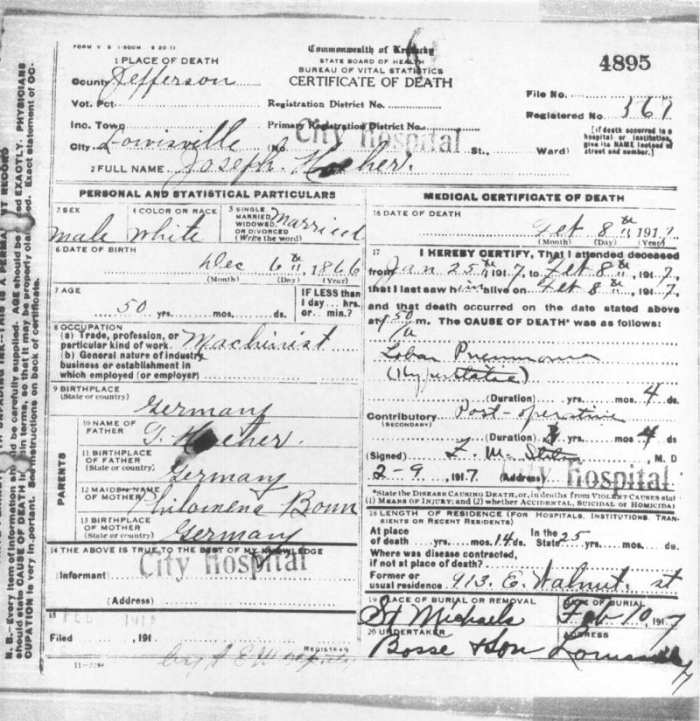 FORM V. S. 1-500M-8 20 11
Commonwealth of Kentucky
STATE BOARD OF HEALTH
BUREAU OF VITAL STATISTICS
CERTIFICATE OF DEATH
4895
1 PLACE OF DEATH
County Jefferson
Vot. Pct
Registration District No.
File No.
Inc. Town
Primary Registration District No.
Registered No. 367
City Louisville (No. City Hospital St., Ward)
[If death occurred in a hospital or institution, give its NAME instead of street and number.]
2 FULL NAME Joseph
PERSONAL AND STATISTICAL PARTICULARS
3 SEX Male
4 COLOR OR RACE White
5 SINGLE, MARRIED, WIDOWED, OR DIVORCED (Write the word) Married
6 DATE OF BIRTH Dec 6th 1866
(Month) (Day) (Year)
7 AGE 50 yrs. mos. ds.
IF LESS than 1 day... hrs. or min.?
8 OCCUPATION
(a) Trade, profession, or particular kind of work Machinist
(b) General nature of industry business or establishment in which employed (or employer)
9 BIRTHPLACE (State or country) Germany
PARENTS
10 NAME OF FATHER
11 BIRTHPLACE OF FATHER (State or country) Germany
12 MAIDEN NAME OF MOTHER Philomena Bonn
13 BIRTHPLACE OF MOTHER (State or country) Germany
14 THE ABOVE IS TRUE TO THE BEST OF MY KNOWLEDGE
(Informant) City Hospital
(Address)
15
Filed 191
REGISTRAR
MEDICAL CERTIFICATE OF DEATH
16 DATE OF DEATH Feb 8th 1917
(Month) (Day) (Year)
17 I HEREBY CERTIFY, That I attended deceased
from Jan 25th 1917, to Feb 8th, 1917,
that I last saw him alive on Feb 8th, 1917,
and that death occurred on the date stated above
at 50 m. The CAUSE OF DEATH* was as follows:
Lobar Pneumonia
(Hypostatic)
(Duration) yrs. mos. 4 ds.
Contributory (SECONDARY) Post-operative
(Duration) yrs. mos. ds
(Signed) M. D
2-9, 1917 (Address) City Hospital
*State the DISEASE CAUSING DEATH, or, in deaths from VIOLENT CAUSES state
(1) MEANS OF INJURY; and (2) whether ACCIDENTAL, SUICIDAL or HOMICIDAL
18 LENGTH OF RESIDENCE (FOR HOSPITALS, INSTITUTIONS, TRANSIENTS OR RECENT RESIDENTS)
At place of death yrs. mos. 14 ds. In the State 25 yrs. mos. ds.
Where was disease contracted, if not at place of death?
Former or usual residence 913 E. Walnut. st
19 PLACE OF BURIAL OR REMOVAL St Michaels
DATE OF BURIAL Feb 10, 1917
20 UNDERTAKER Bosse & Son
ADDRESS Louisville
11-2284
N. B.—Every item of information should be carefully supplied. AGE should be stated EXACTLY. PHYSICIANS
should state CAUSE OF DEATH in plain terms, so that it may be properly classified. Exact statement of OCCUPATION is very important. See instructions on back of certificate.